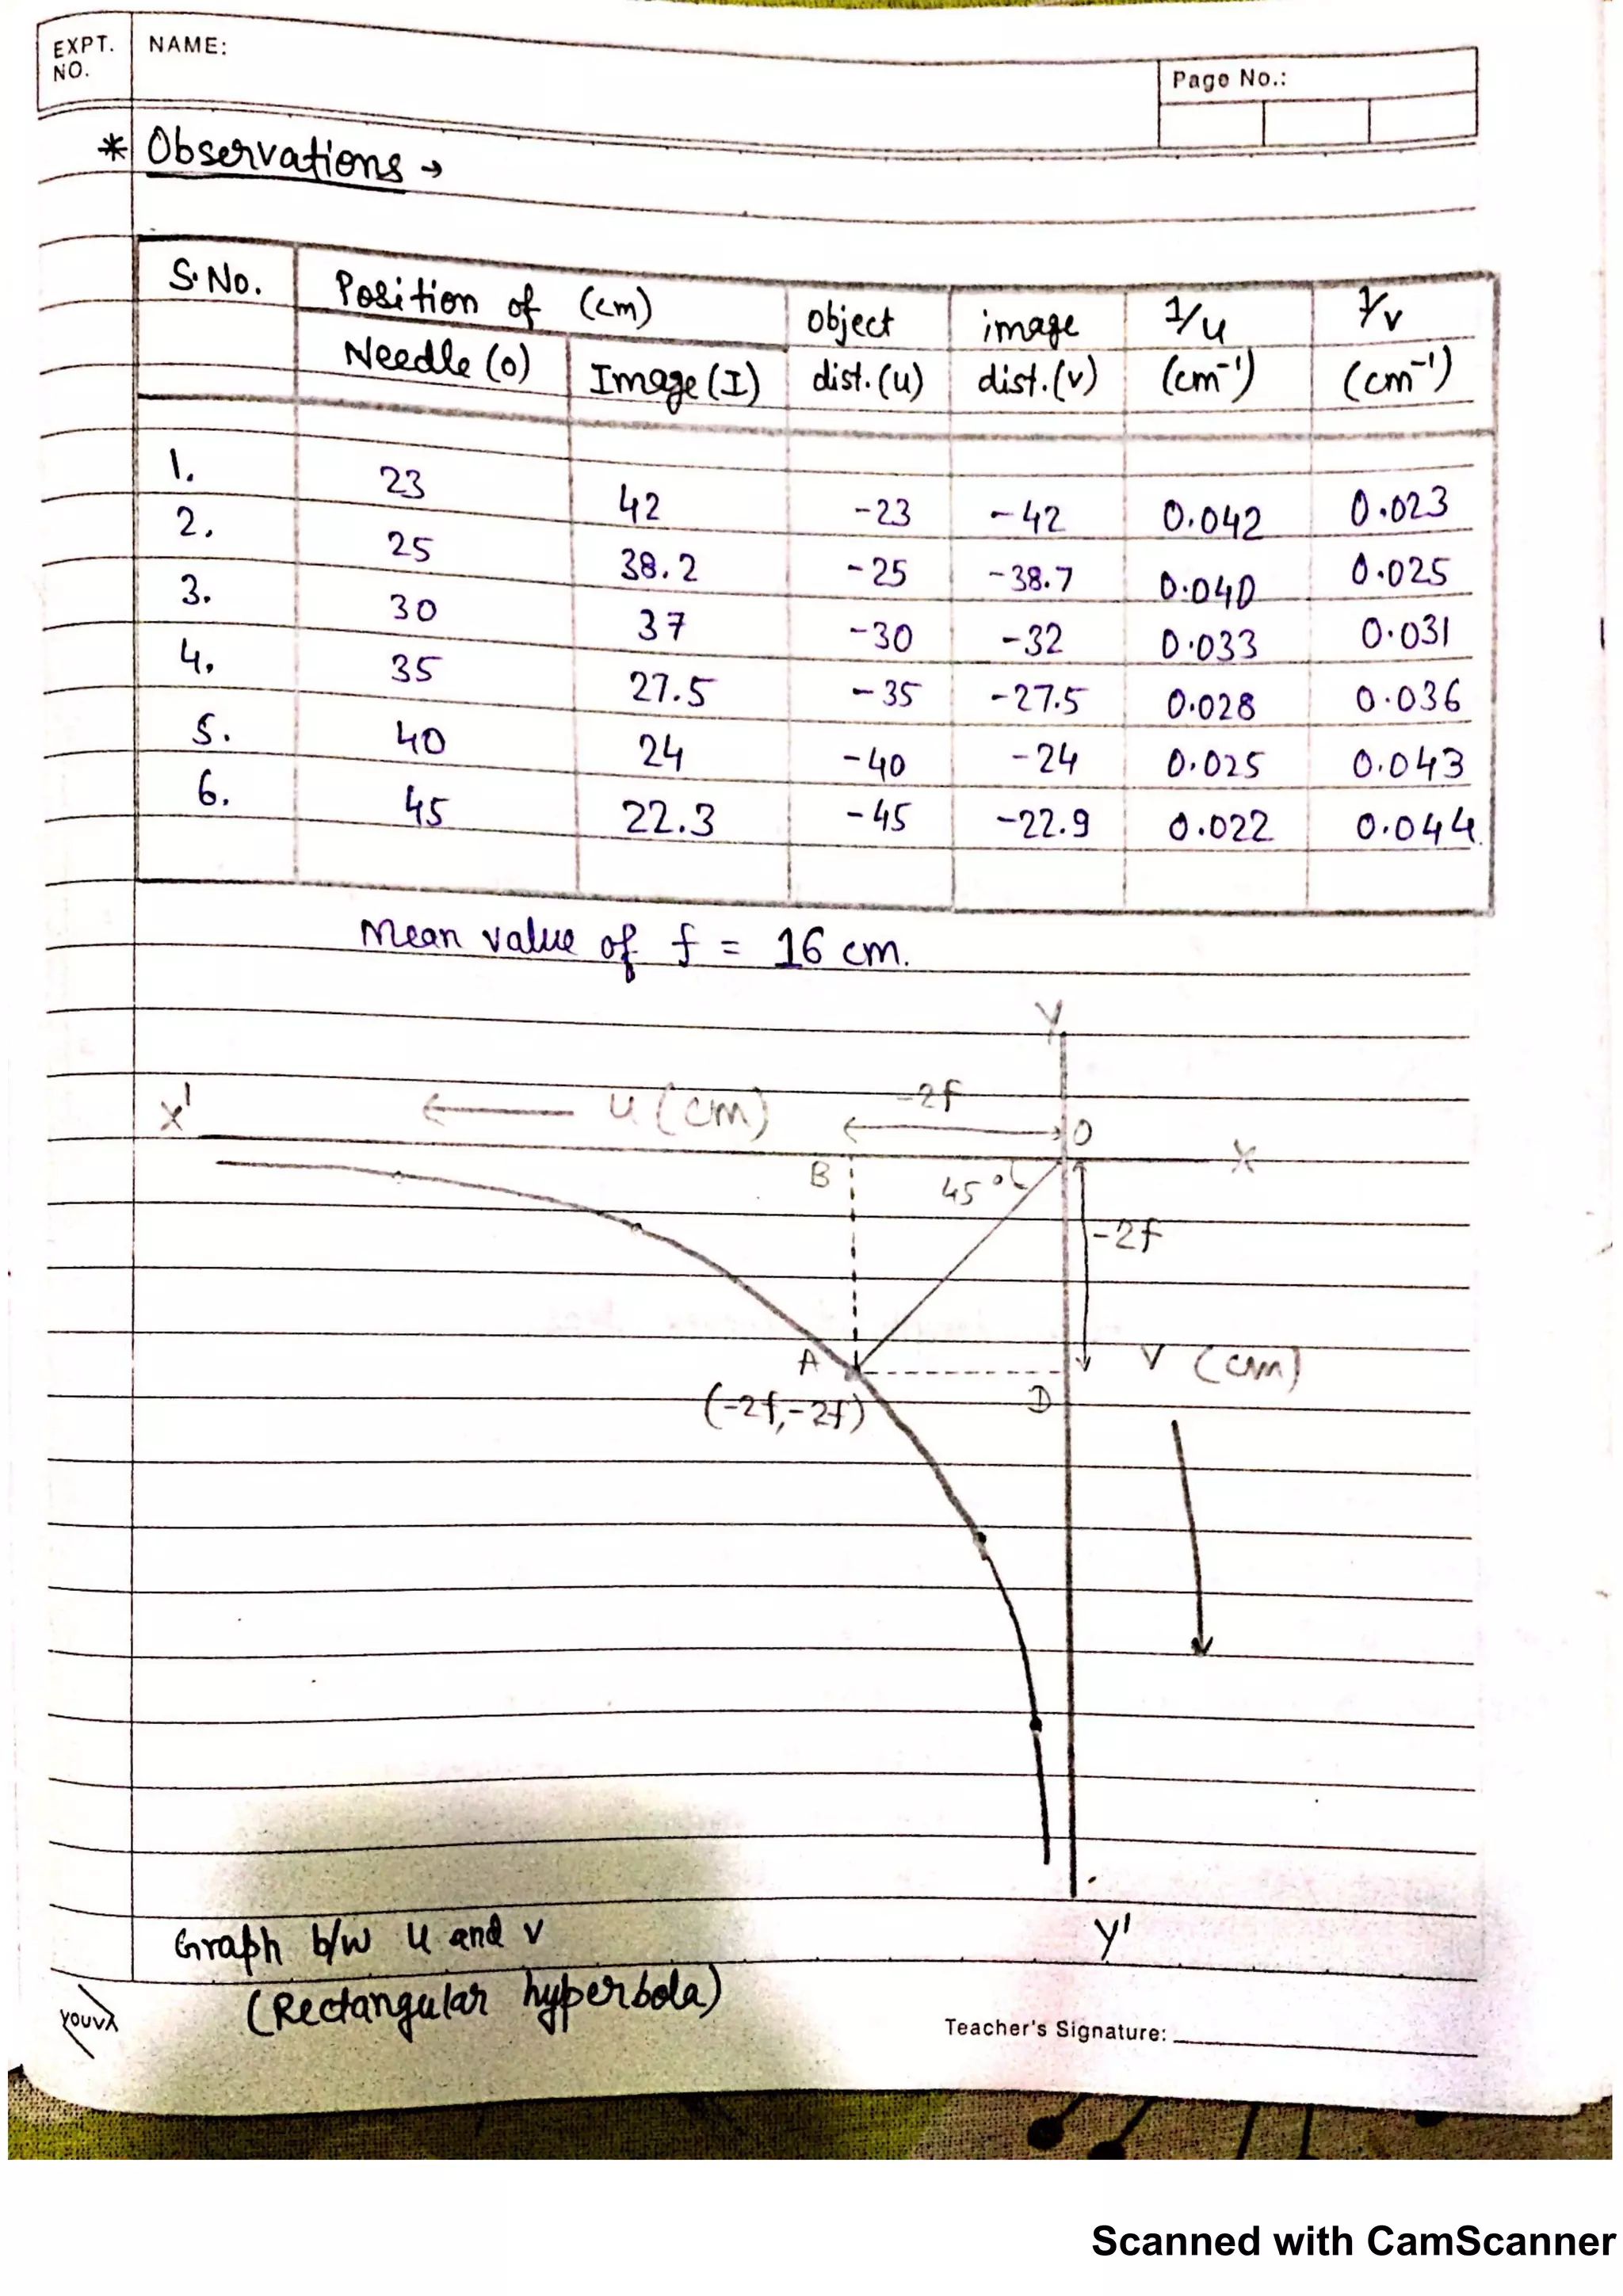 EXPT. NO.
NAME:
Page No.:
* Observations →
S.No. Position of (cm) object image 1/u 1/v
Needle (O) Image (I) dist. (u) dist. (v) (cm⁻¹) (cm⁻¹)
1. 23 42 -23 -42 0.042 0.023
2. 25 38.2 -25 -38.7 0.040 0.025
3. 30 37 -30 -32 0.033 0.031
4. 35 27.5 -35 -27.5 0.028 0.036
5. 40 24 -40 -24 0.025 0.043
6. 45 22.3 -45 -22.9 0.022 0.044
Mean value of f = 16 cm.
Y
X' ← u (cm) -2f O
B 45° X
-2f
A D V (cm)
(-2f, -2f)
Y'
Graph b/w u and v
(Rectangular hyperbola)
YOUVA
Teacher's Signature:
Scanned with CamScanner